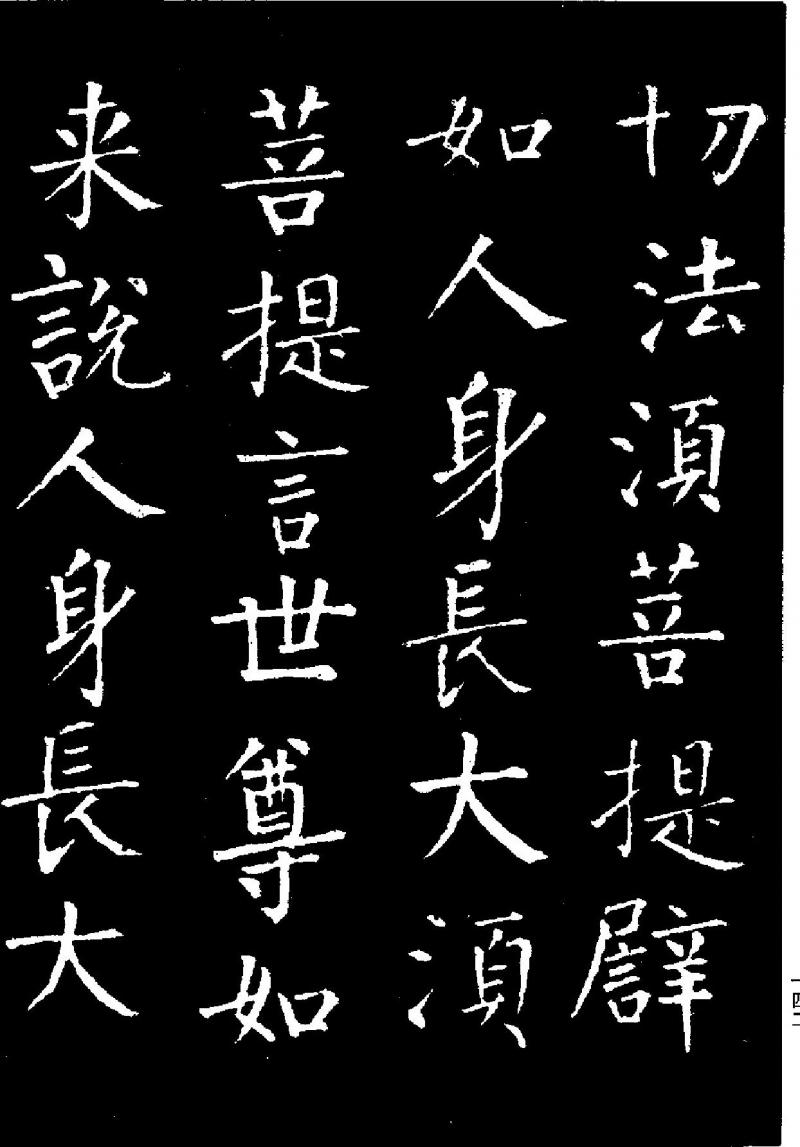 切法湏菩提譬
如人身長大湏
菩提言世尊如
来說人身長大
一四二